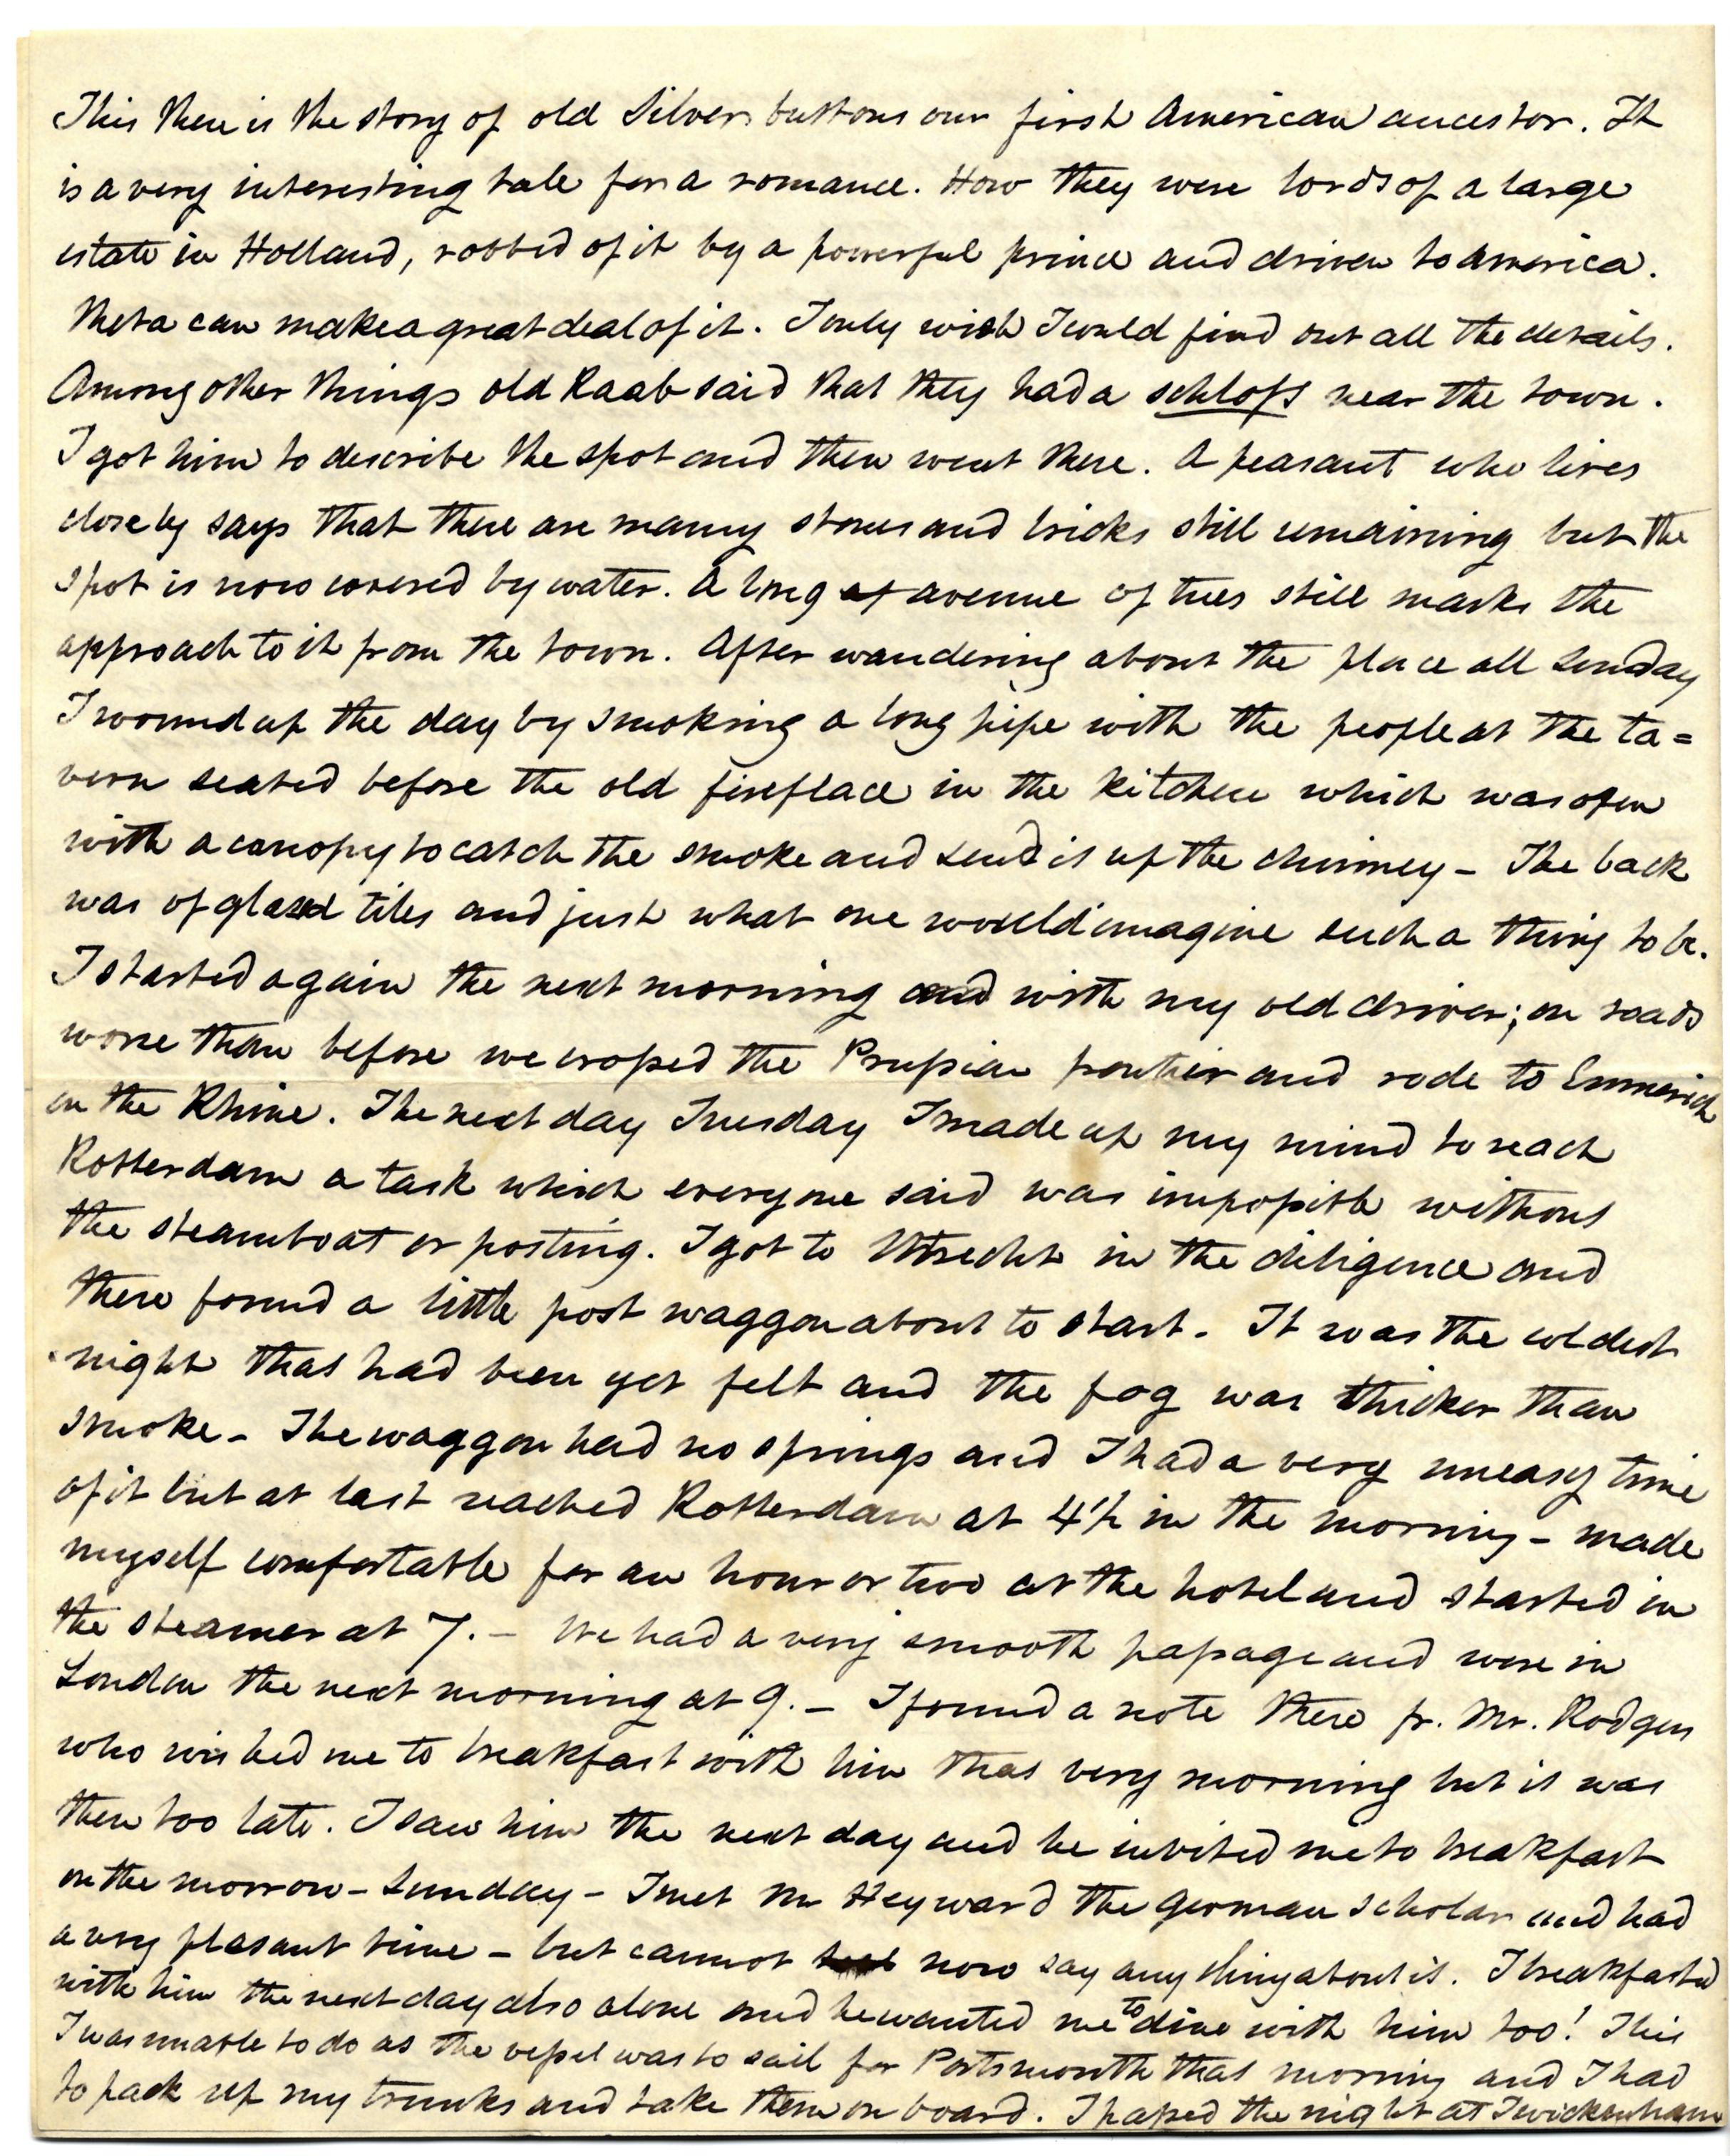 This then is the story of old Silver buttons our first American ancestor. It
is a very interesting tale for a romance. How they were lords of a large
estate in Holland, robbed of it by a powerful prince and driven to America.
Meta can make a great deal of it. I only wish I could find out all the details.
Among other things old Raab said that they had a schloss near the town.
I got him to describe the spot and then went there. A peasant who lives
close by says that there are many stones and bricks still remaining but the
spot is now covered by water. A long avenue of trees still marks the
approach to it from the town. After wandering about the place all Sunday
I wound up the day by smoking a long pipe with the people at the ta=
vern seated before the old fireplace in the kitchen which was open
with a canopy to catch the smoke and send it up the chimney – The back
was of glazed tiles and just what one would imagine such a thing to be.
I started again the next morning and with my old driver; on roads
worse than before we crossed the Prussian frontier and rode to Emmerich
on the Rhine. The next day Tuesday I made up my mind to reach
Rotterdam a task which everyone said was impossible without
the steamboat or posting. I got to Utrecht in the diligence and
there found a little post waggon about to start. It was the coldest
night that had been yet felt and the fog was thicker than
smoke – The waggon had no springs and I had a very uneasy time
of it but at last reached Rotterdam at 4½ in the morning – made
myself comfortable for an hour or two at the hotel and started in
the steamer at 7. – We had a very smooth passage and were in
London the next morning at 9. – I found a note there fr. Mr. Rodgers
who wished me to breakfast with him that very morning but it was
then too late. I saw him the next day and he invited me to breakfast
on the morrow – Sunday – I met Mr Heyward the German scholar and had
a very pleasant time – but cannot now say any thing about it. I breakfasted
with him the next day also alone and he wanted me to dine with him too! This
I was unable to do as the vessel was to sail for Portsmouth that morning and I had
to pack up my trunks and take them on board. I passed the night at Twickenham